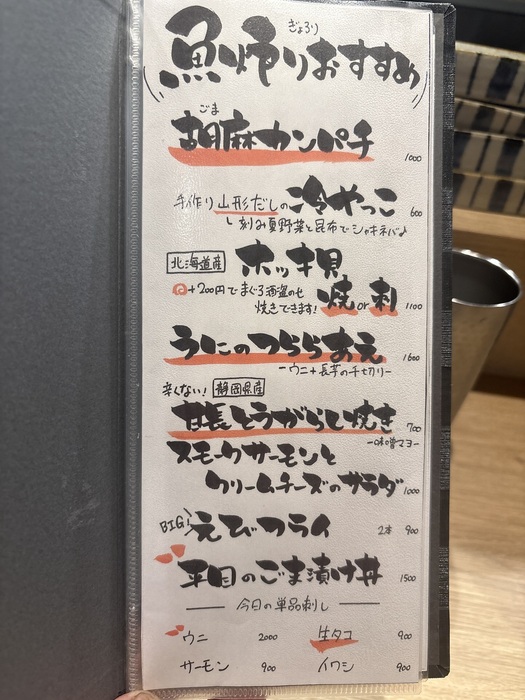 ぎょろり
魚帰りおすすめ
ごま
胡麻カンパチ 1000
手作り山形だしの冷やっこ 600
刻み夏野菜と昆布でシャキネバ♪
北海道産 ホッキ貝
+200円でまぐろ酒盗のせ
焼きできます! 焼or刺 1100
うにのつららあえ 1600
-ウニ+長芋の千切り-
辛くない! 静岡県産
甘長とうがらし焼き 700
-味噌マヨ-
スモークサーモンと
クリームチーズのサラダ 1000
BIG! えびフライ 2本 900
平目のごま漬け丼 1500
今日の単品刺し
ウニ 2000 生タコ 900
サーモン 900 イワシ 900